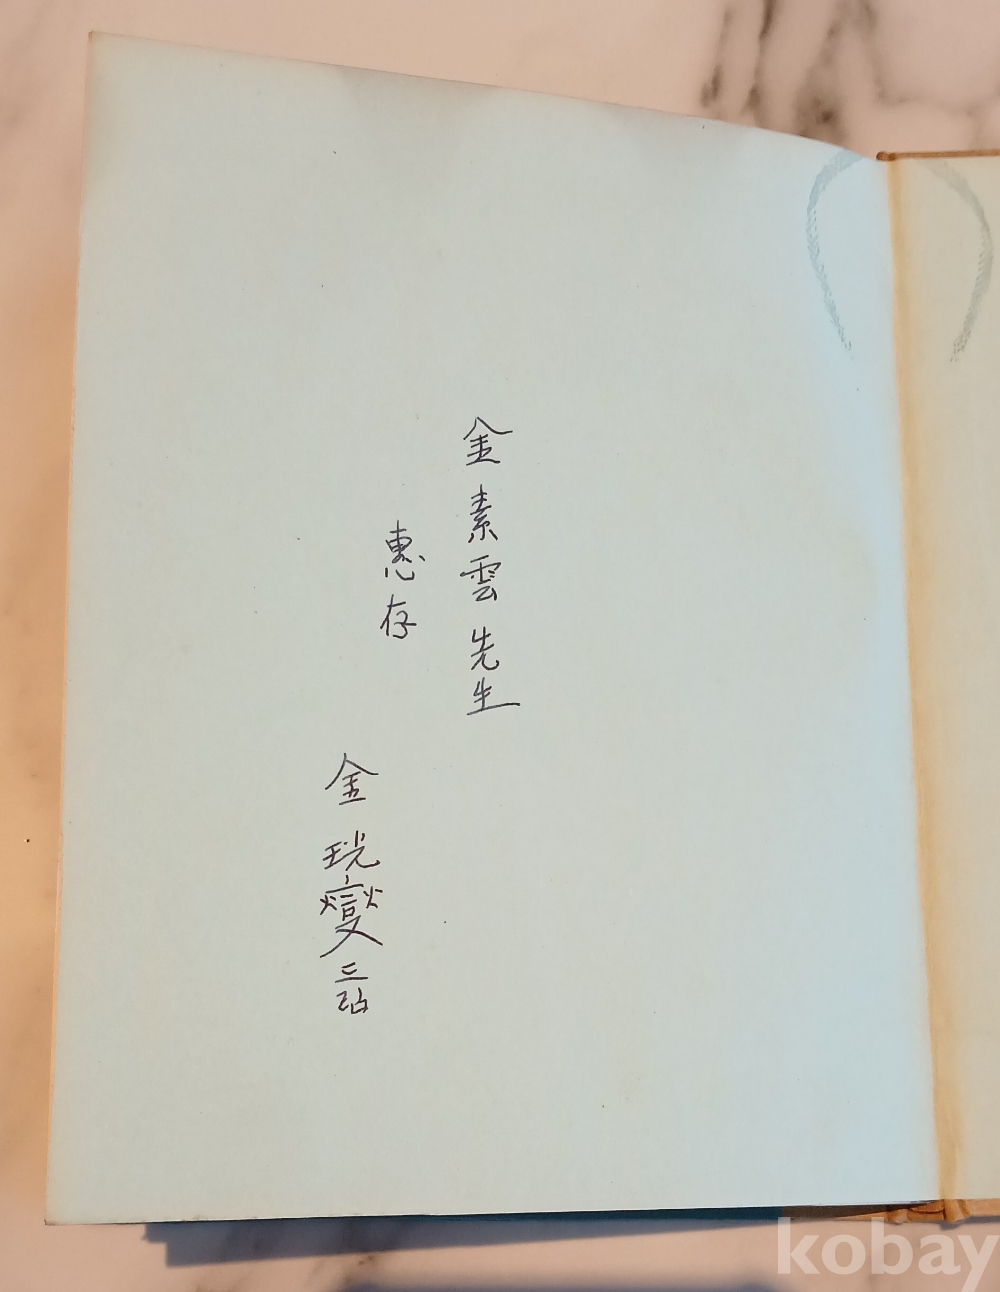 金素雲先生
惠存
金珖燮
kobay